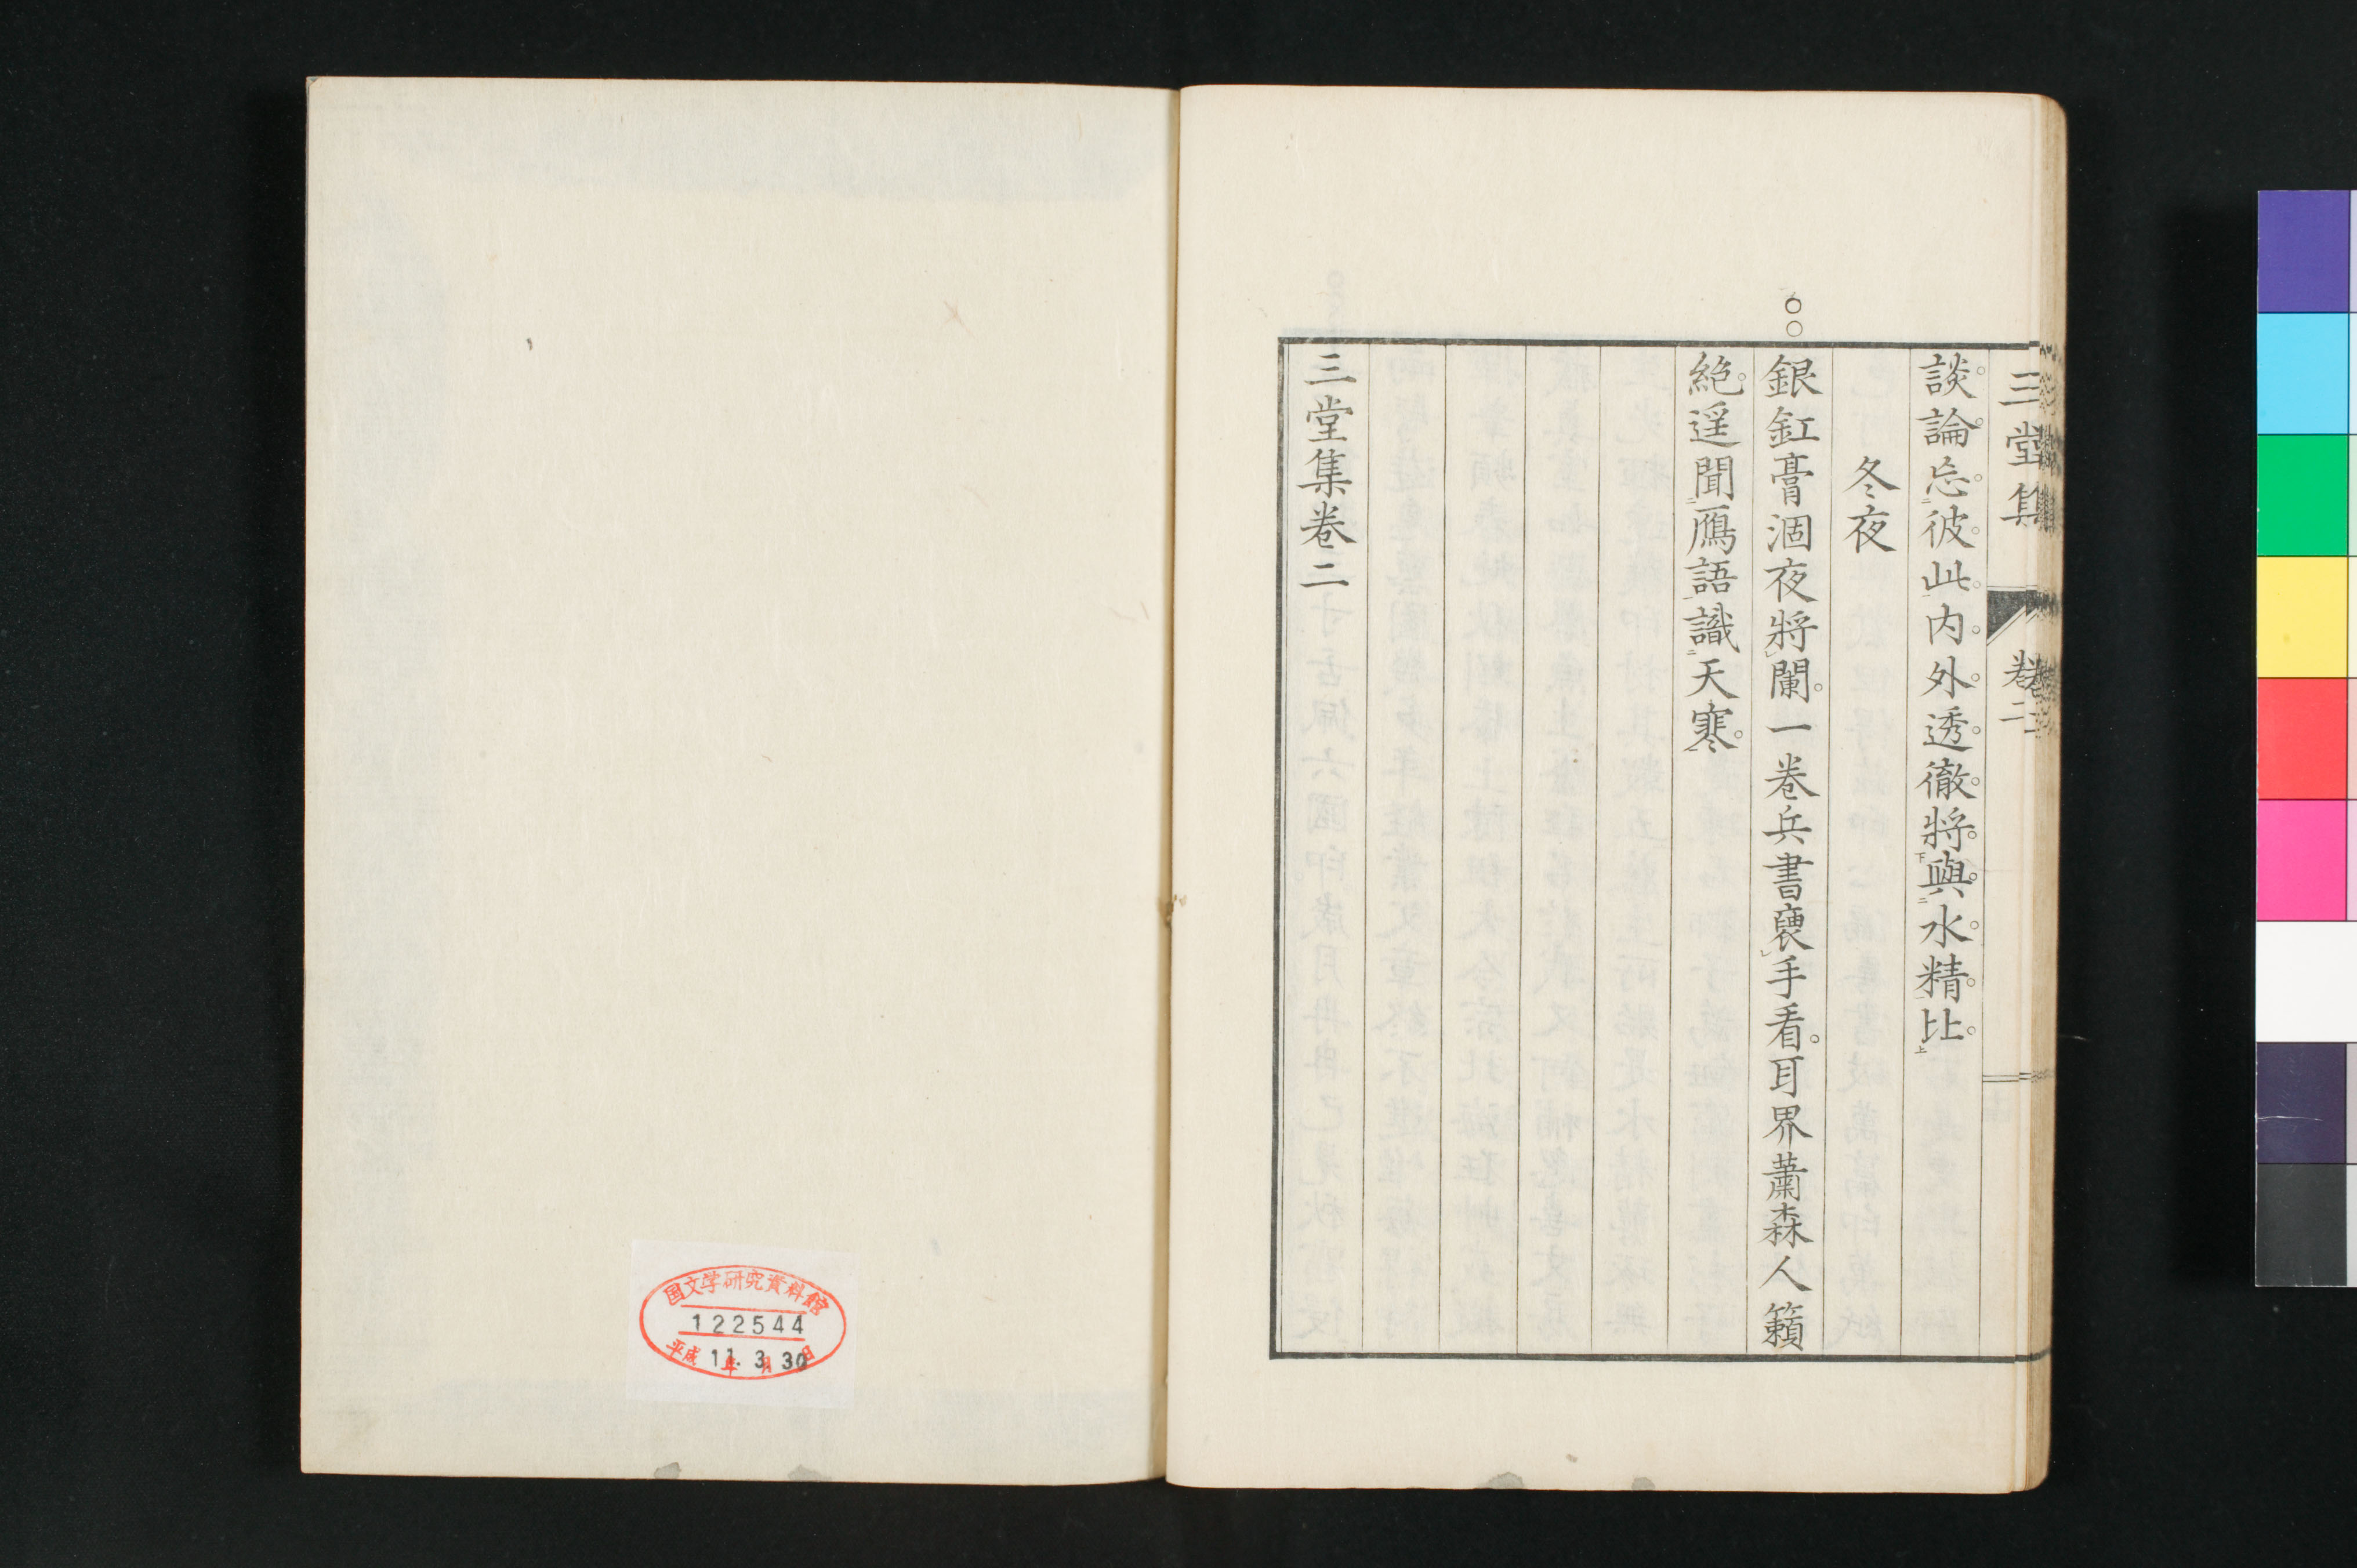 三堂集 卷二
談論忘彼此内外透徹將與水精比
冬夜
銀釭膏涸夜將闌一卷兵書褏手看耳界蕭森人籟
絶遥聞鴈語識天寒
三堂集卷二
国文学研究資料館
122544
平成 11年 3月 30日